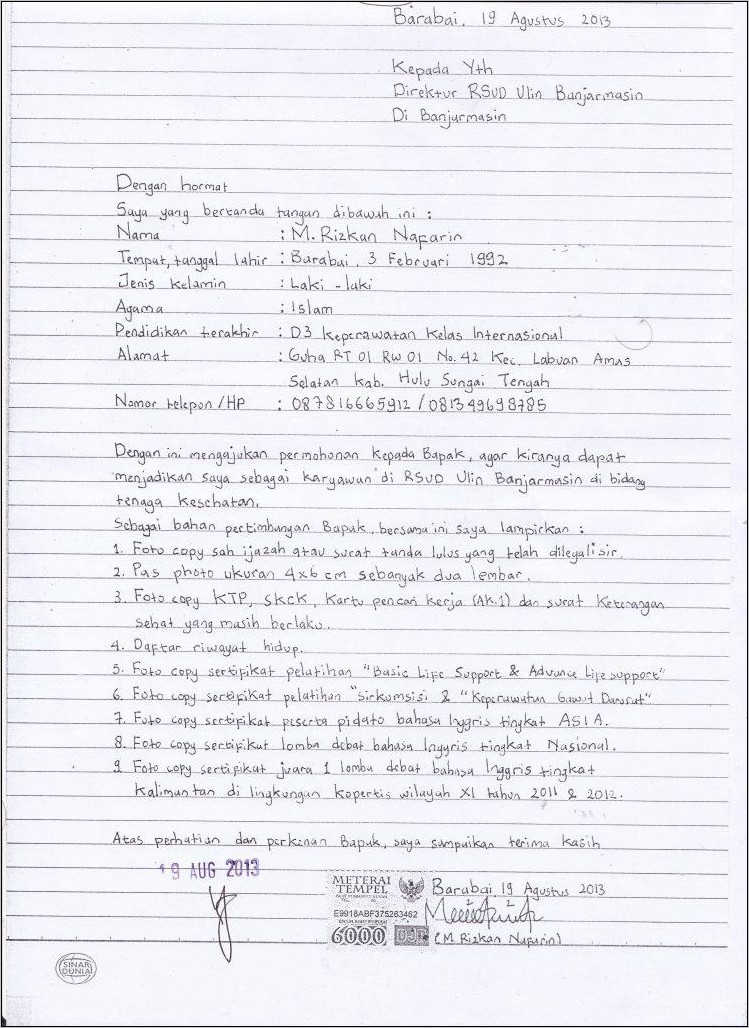 Barabai, 19 Agustus 2013
Kepada Yth
Direktur RSUD Ulin Banjarmasin
Di Banjarmasin
Dengan hormat
Saya yang bertanda tangan dibawah ini :
Nama : M. Rizkan Nafarin
Tempat, tanggal lahir : Barabai, 3 Februari 1992
Jenis Kelamin : Laki - laki
Agama : Islam
Pendidikan terakhir : D3 Keperawatan Kelas Internasional
Alamat : Guha RT 01 RW 01 No. 42 Kec. Labuan Amas
Selatan Kab. Hulu Sungai Tengah
Nomor telepon / HP : 087816665912 / 081349698785
Dengan ini mengajukan permohonan kepada Bapak, agar kiranya dapat
menjadikan saya sebagai karyawan di RSUD Ulin Banjarmasin di bidang
tenaga kesehatan.
Sebagai bahan pertimbangan Bapak, bersama ini saya lampirkan :
1. Foto copy sah ijazah atau surat tanda lulus yang telah dilegalisir.
2. Pas photo ukuran 4x6 cm sebanyak dua lembar.
3. Foto copy KTP, SKCK, Kartu pencari kerja (AK.1) dan surat Keterangan
sehat yang masih berlaku.
4. Daftar riwayat hidup.
5. Foto copy sertifikat pelatihan "Basic Life Support & Advance Life support"
6. Foto copy sertifikat pelatihan "Sirkumsisi & "Keperawatan Gawat Darurat"
7. Foto copy sertifikat peserta pidato bahasa Inggris tingkat ASIA.
8. Foto copy sertifikat lomba debat bahasa Inggris tingkat Nasional.
9 Foto copy sertifikat juara 1 lomba debat bahasa Inggris tingkat
Kalimantan di lingkungan Kopertis wilayah XI tahun 2011 & 2012.
Atas perhatian dan perkenan Bapak, saya sampaikan terima kasih
19 AUG 2013
METERAI
TEMPEL
E9918ABF375263462
6000 DJP
Barabai, 19 Agustus 2013
(M. Rizkan Nafarin)
SINAR
DUNIA